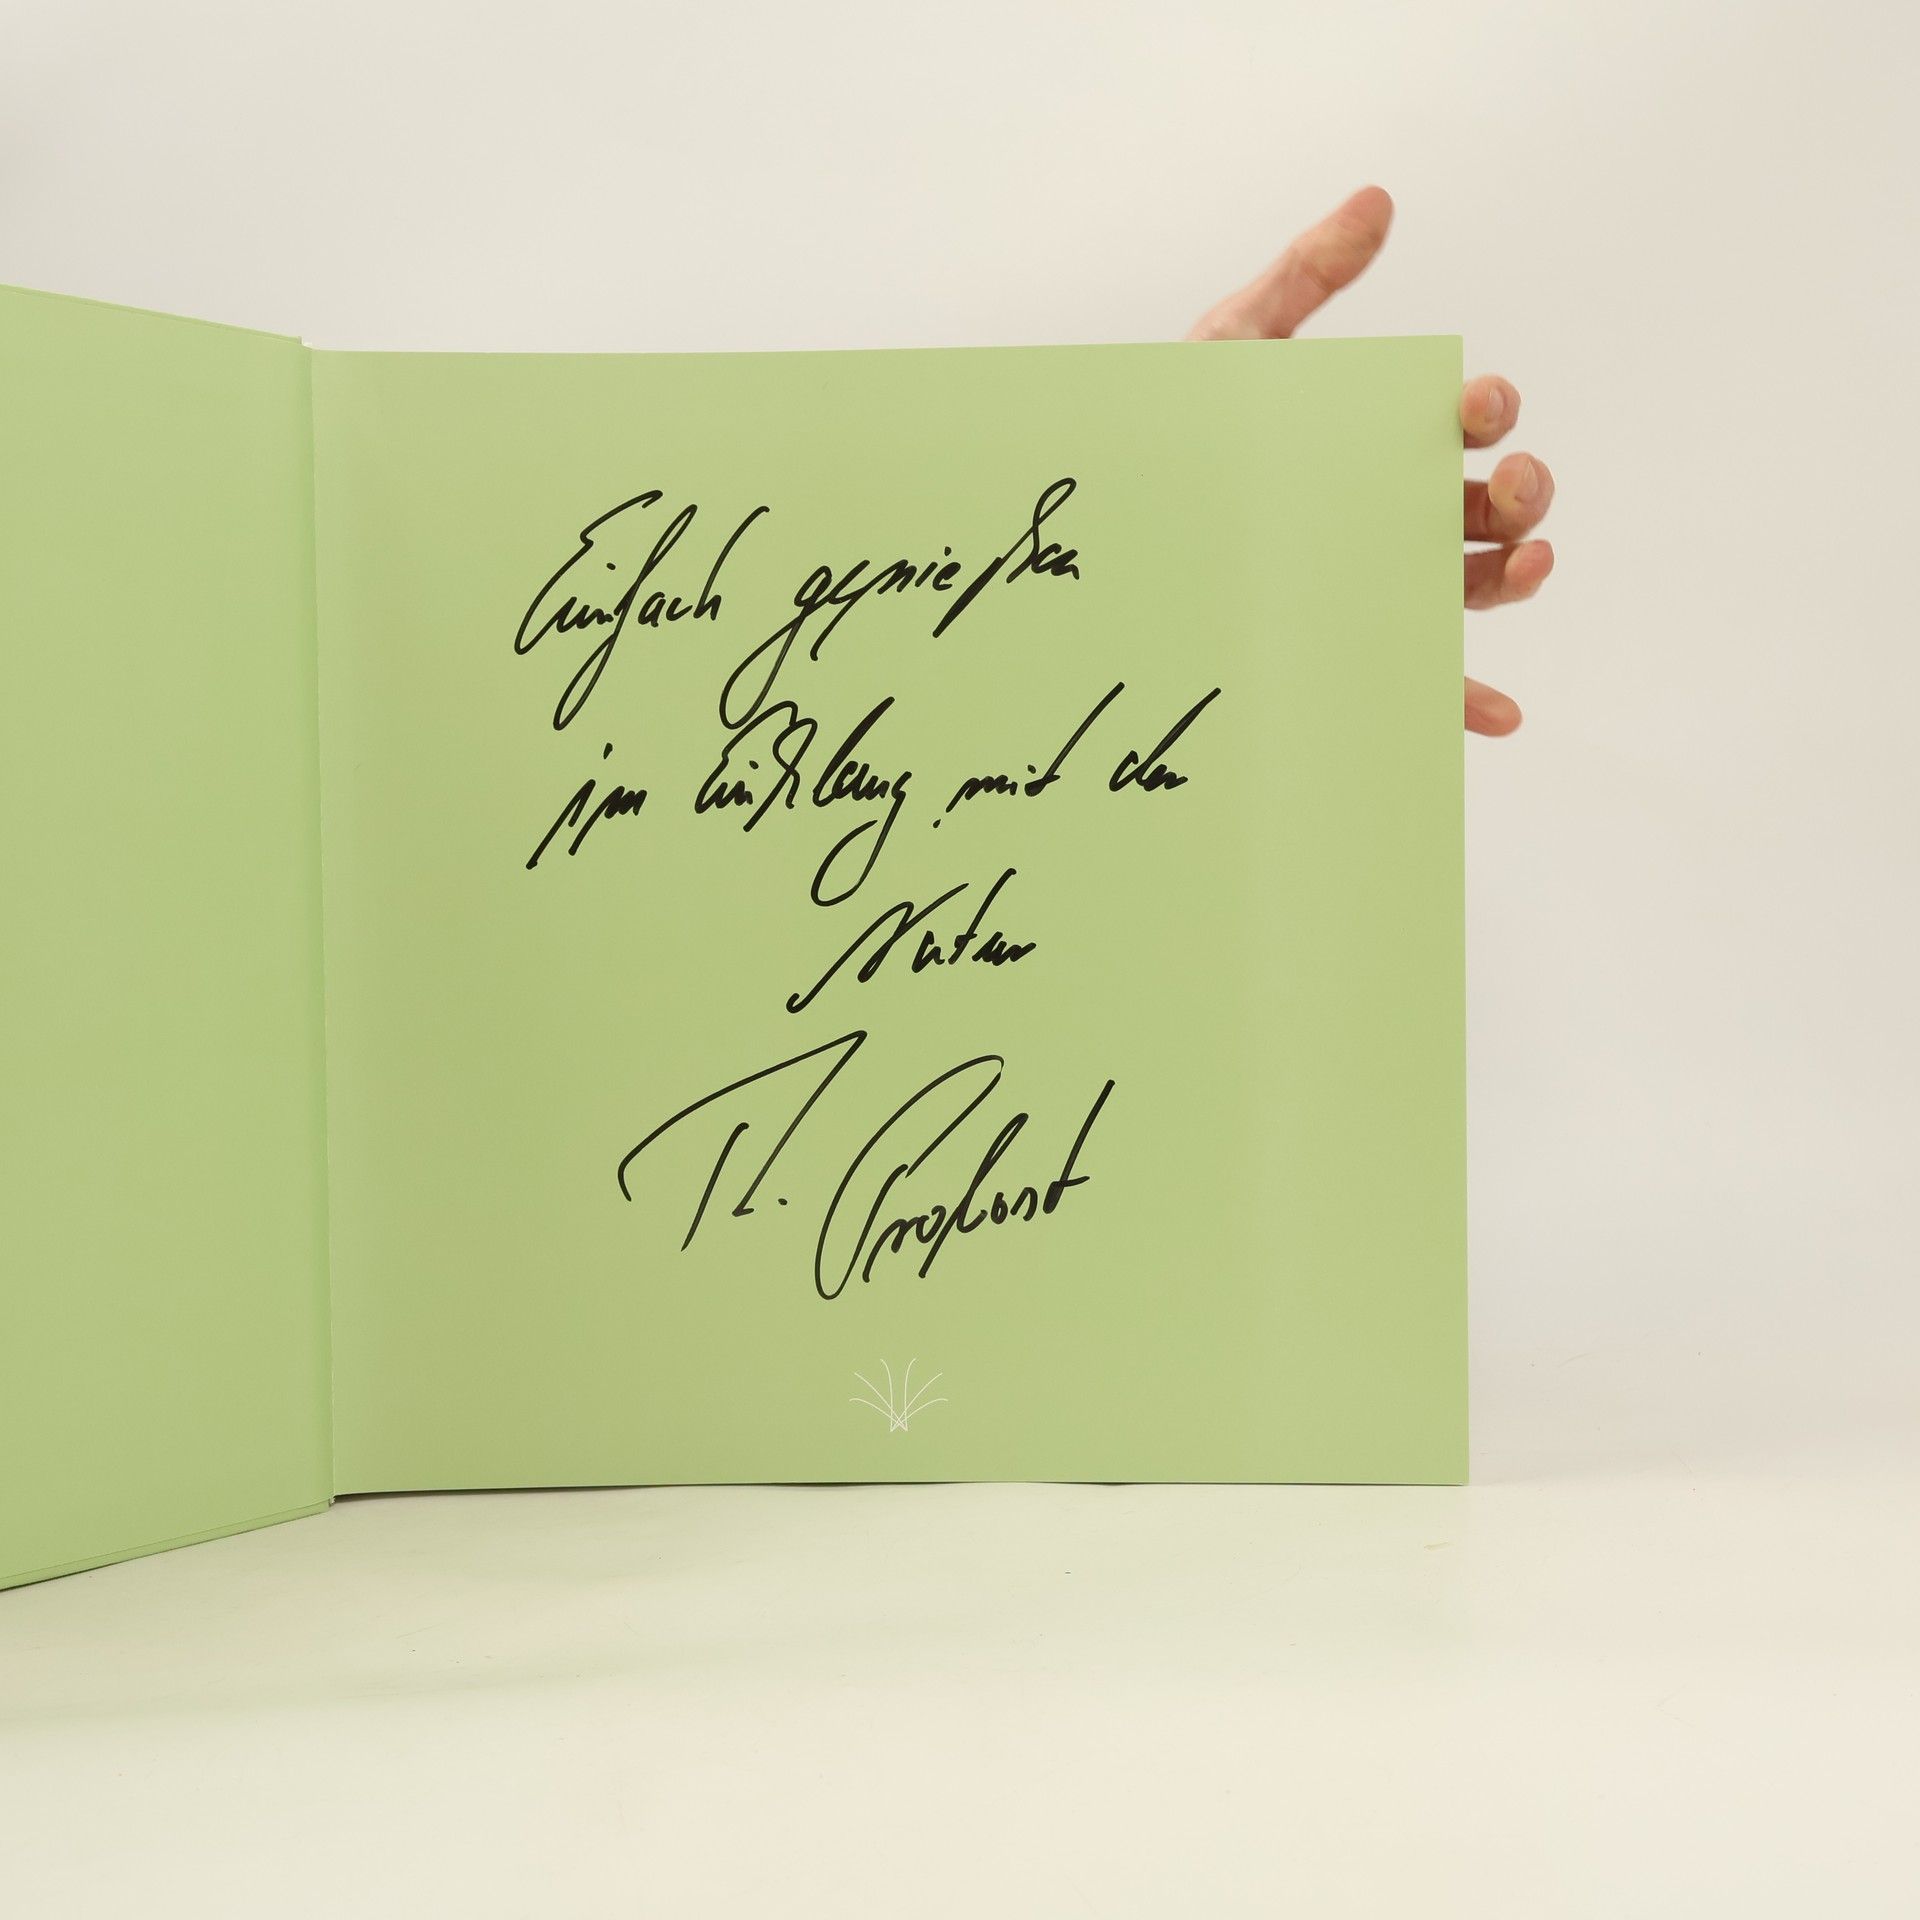 Einfach genießen
im Einklang mit der
Natur
Th. Probst